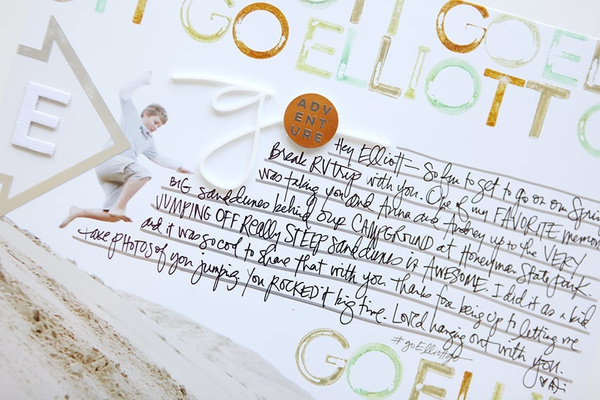 GOELLIOTT
GOELLIOTT
GOEL
E
go
ADV
ENT
URE
Hey Elliott— So fun to get to go on our Spring
Break RV trip with you. One of my FAVORITE memories
was taking you and Anna and Andrew up to the VERY
BIG sand dunes behind our CAMPGROUND at Honeyman State park.
JUMPING OFF Really STEEP sand dunes is AWESOME. I did it as a kid
and it was so cool to share that with you. Thanks for being up to letting me
take photos of you jumping. You ROCKED it big time. Loved hanging out with you.
#goElliottgo
GOELL